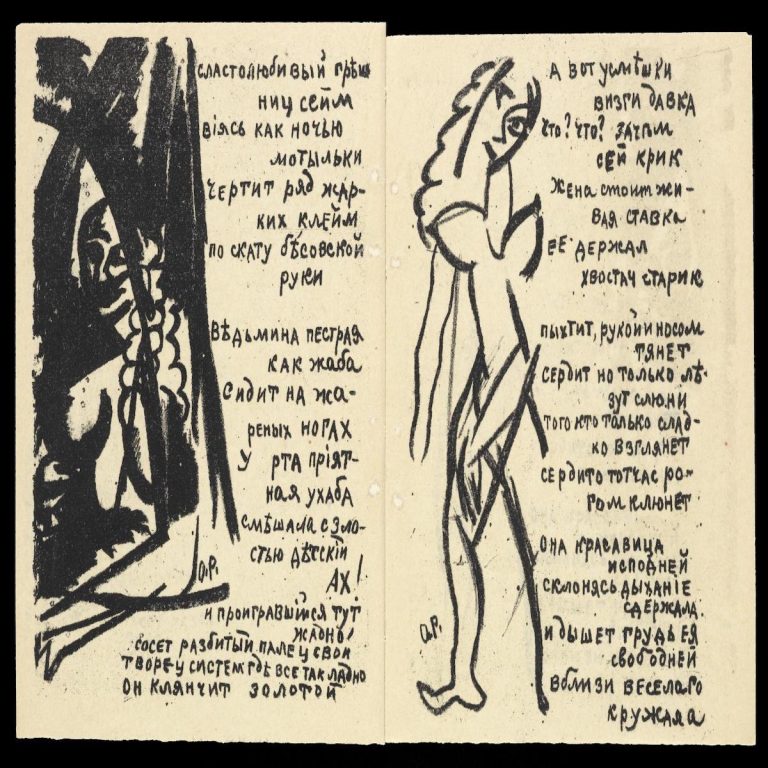 сластолюбивый грѣш
ниц сейм
віясь как ночью
мотыльки
чертит ряд жар-
ких клейм
по скату бѣсовской
руки
Вѣдьмина пестрая
как жаба
сидит на жа-
реных ногах
у рта пріят-
ная ухаба
смѣшала с зло-
стью дѣтскій
АХ!
О.Р.
и проигравшійся тут
жадно
сосет разбитый палец свой
творец систем гдѣ все так ладно
он клянчит золотой
А вот усмѣшки
визги давка
что? что? зачѣм
сей крик
жена стоит жи-
вая ставка
ее держал
хвостач старик
пыхтит, рукой и носом
тянет
сердит но только лѣ-
зут слюни
того кто только слад-
ко взглянет
сердито тотчас ро-
гом клюнет
она красавица
исподней
склонясь дыханіе
сдержала.
и дышет грудь ея
свободней
вблизи веселаго
кружала
О.Р.